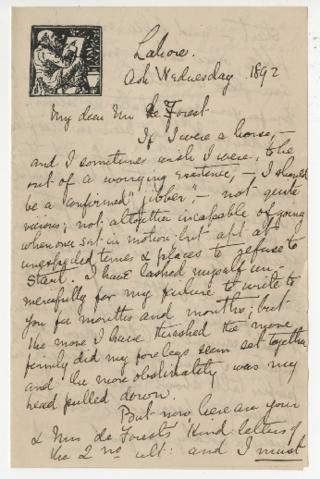 Lahore.
Ash Wednesday 1892
My dear Mr de Forest
If I were a horse, -
and I sometimes wish I were, to be
out of a worrying existence, - I should
be a "confirmed" jibber", - not quite
vicious; not altogether incapable of going
when once set in motion but apt at
unexpected times & places to refuse to
start. I have lashed myself un-
mercifully for my failure to write to
you for months and months; but
the more I have thrashed the more
firmly did my fore legs seem set together
and the more obstinately was my
head pulled down.
But now here are your
& Mrs de Forests' kind letters of
the 2nd ult: and I must